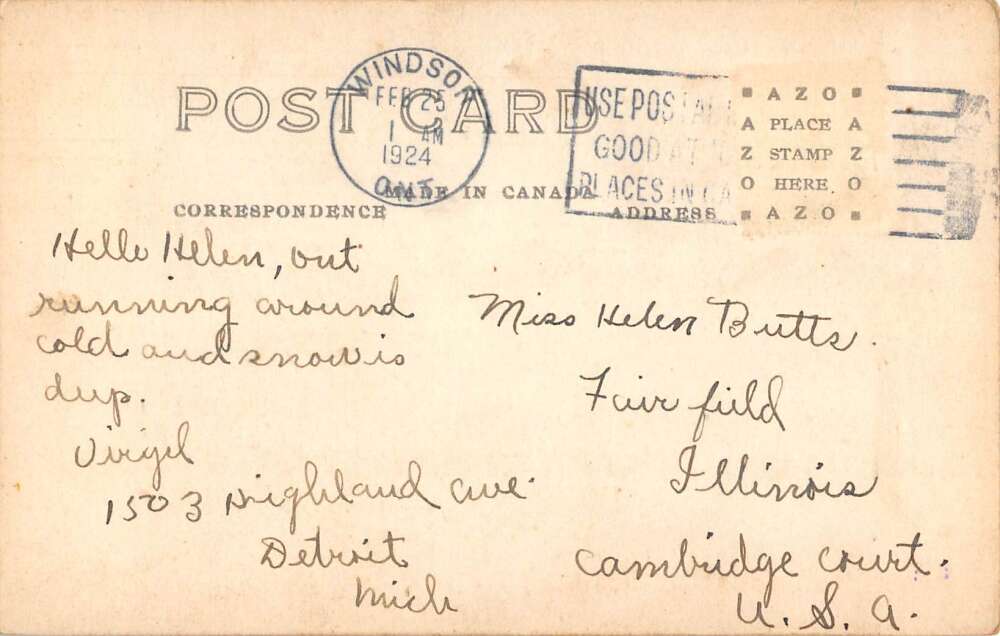 POST CARD
WINDSOR
FEB 25
1 AM
1924
ONT.
USE POSTAGE
GOOD AT
PLACES IN CA
A Z O
A PLACE A
Z STAMP Z
O HERE O
A Z O
MADE IN CANADA
CORRESPONDENCE
ADDRESS
Hello Helen, out
running around
cold and snow is
deep.
Virgil
1503 Highland ave.
Detroit
Mich
Miss Helen Butts.
Fairfield
Illinois
Cambridge Court.
U. S. A.